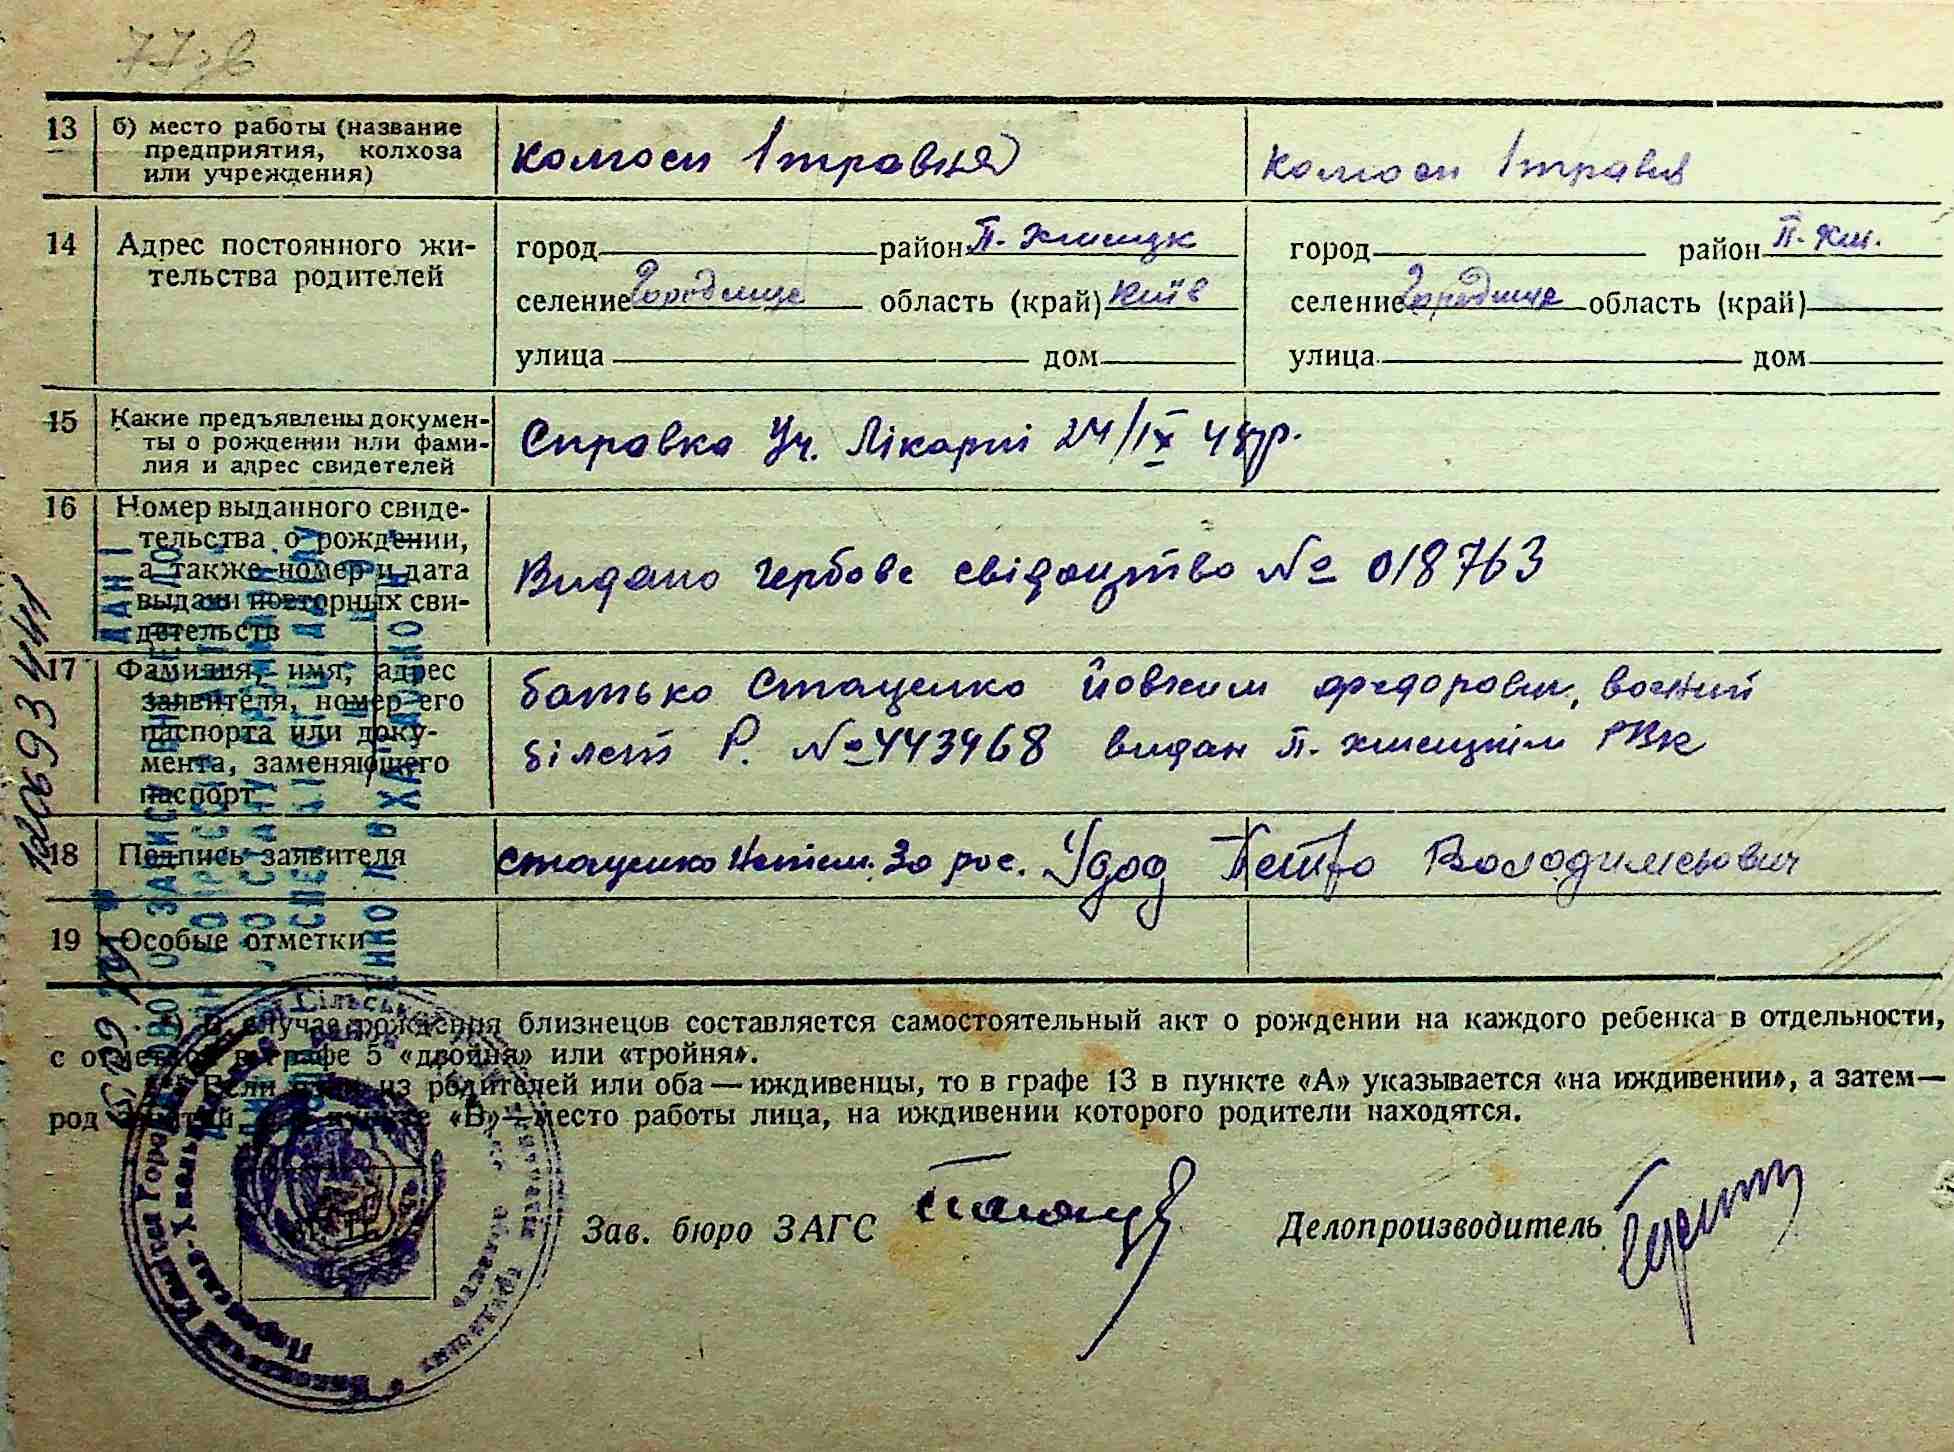 77зв
13 б) место работы (название
предприятия, колхоза
или учреждения)
колгосп 1 травня
колгосп 1 травня
14 Адрес постоянного жи-
тельства родителей
город район П. Хмельцк
селение Городище область (край) Київ
улица дом
город район П. Хм.
селение Городище область (край)
улица дом
15 Какие предъявлены докумен-
ты о рождении или фами-
лия и адрес свидетелей
Справка Уч. Лікарні 24/IX 48 р.
16 Номер выданного свиде-
тельства о рождении,
а также номер и дата
выдачи повторных сви-
детельств
Видано гербове свідоцтво № 018763
17 Фамилия, имя, адрес
заявителя, номер его
паспорта или доку-
мента, заменяющего
паспорт
батько Стаценко Йовхим Федорович, воєнний
білет Р. № 443468 видан П. Хмецким РВК
18 Подпись заявителя
Стаценко За рос. Удод Петро Володимирович
19 Особые отметки
*) В случае рождения близнецов составляется самостоятельный акт о рождении на каждого ребенка в отдельности,
с отметкой в графе 5 «двойня» или «тройня».
Если один из родителей или оба — иждивенцы, то в графе 13 в пункте «А» указывается «на иждивении», а затем—
род занятий «В»—место работы лица, на иждивении которого родители находятся.
Зав. бюро ЗАГС
Делопроизводитель